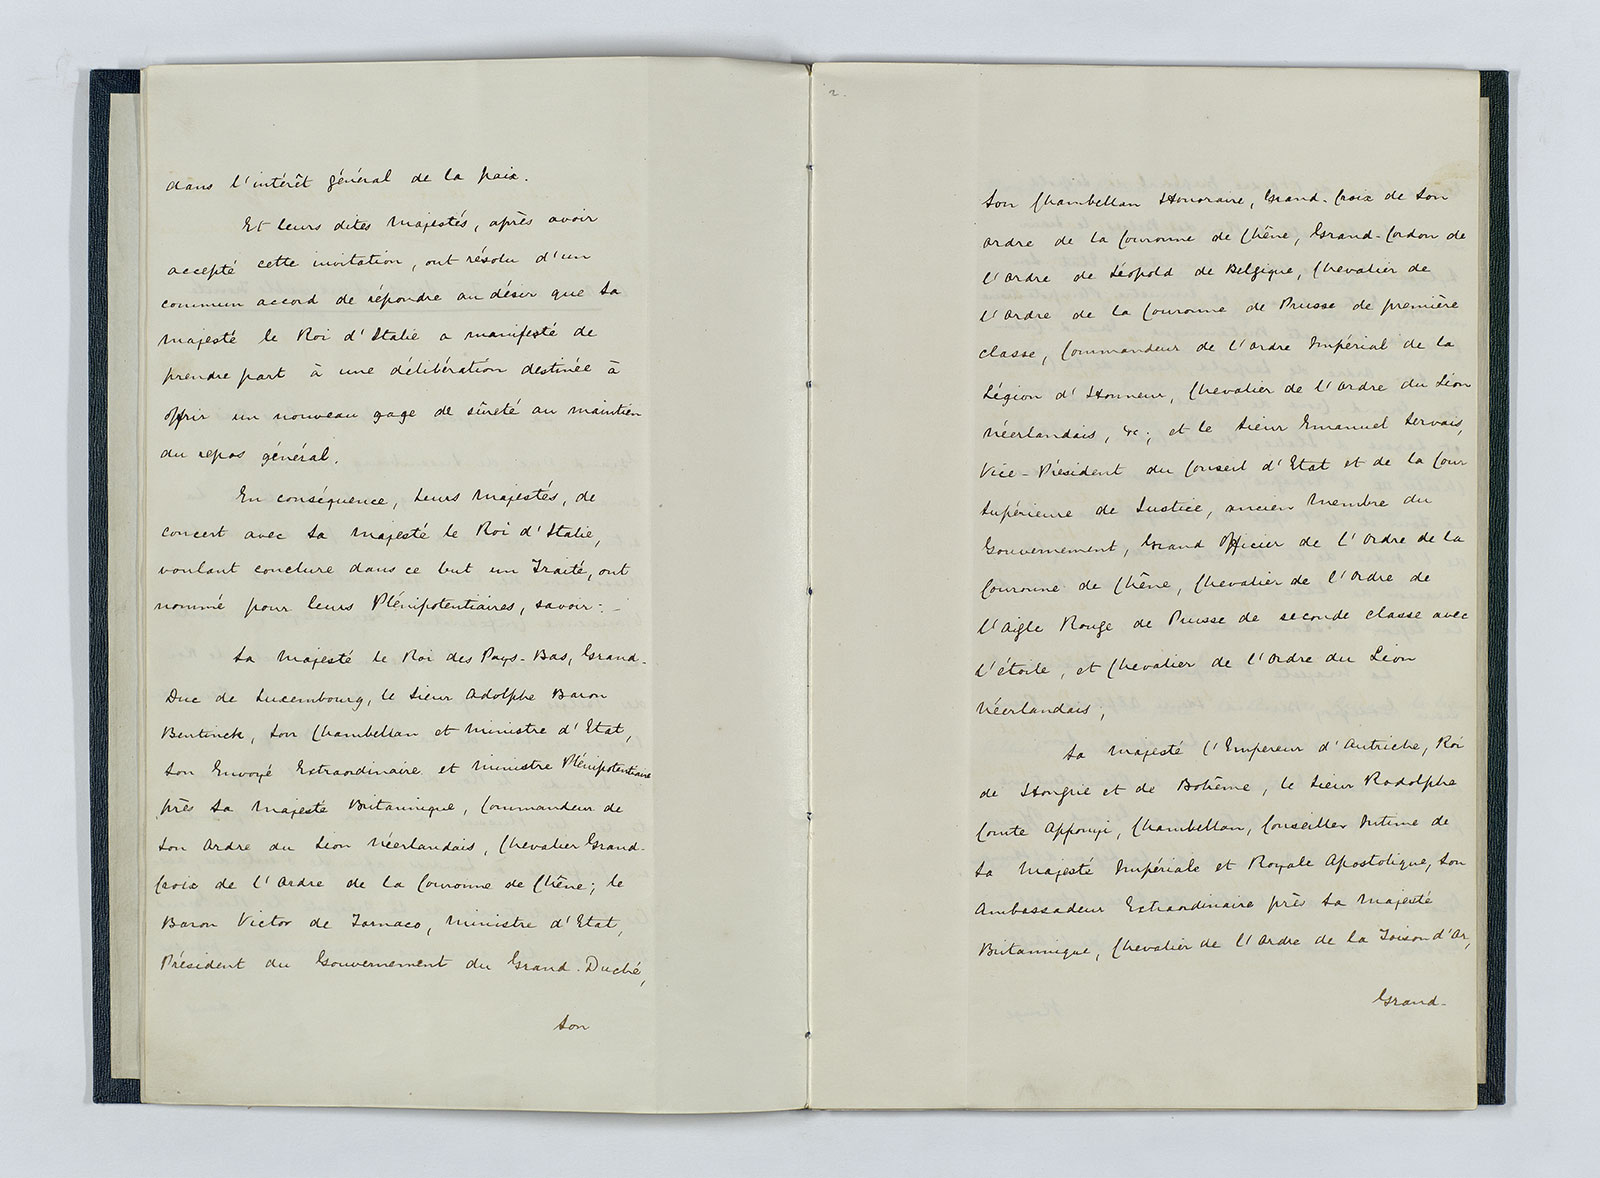 dans l'intérêt général de la paix.
Et leurs dites Majestés, après avoir
accepté cette invitation, ont résolu d'un
commun accord de répondre au désir que Sa
Majesté le Roi d'Italie a manifesté de
prendre part à une délibération destinée à
offrir un nouveau gage de sûreté au maintien
du repos général.
En conséquence, Leurs Majestés, de
concert avec Sa Majesté le Roi d'Italie,
voulant conclure dans ce but un Traité, ont
nommé pour leurs Plénipotentiaires, savoir:-
Sa Majesté le Roi des Pays-Bas, Grand-
Duc de Luxembourg, le Sieur Adolphe Baron
Bentinck, Son Chambellan et Ministre d'Etat,
Son Envoyé Extraordinaire et Ministre Plénipotentiaire
près Sa Majesté Britannique, Commandeur de
Son Ordre du Lion Néerlandais, Chevalier Grand-
Croix de l'Ordre de la Couronne de Chêne; le
Baron Victor de Tornaco, Ministre d'Etat,
Président du Gouvernement du Grand-Duché,
Son
2.
Son Chambellan Honoraire, Grand-Croix de Son
Ordre de la Couronne de Chêne, Grand-Cordon de
l'Ordre de Léopold de Belgique, Chevalier de
l'Ordre de la Couronne de Prusse de première
classe, Commandeur de l'Ordre Impérial de la
Légion d'Honneur, Chevalier de l'Ordre du Lion
Néerlandais, &c; et le Sieur Emanuel Servais,
Vice-Président du Conseil d'Etat et de la Cour
Supérieure de Justice, ancien Membre du
Gouvernement, Grand Officier de l'Ordre de la
Couronne de Chêne, Chevalier de l'Ordre de
l'Aigle Rouge de Prusse de seconde classe avec
l'étoile, et Chevalier de l'Ordre du Lion
Néerlandais,
Sa Majesté l'Empereur d'Autriche, Roi
de Hongrie et de Bohême, le Sieur Rodolphe
Comte Apponyi, Chambellan, Conseiller Intime de
Sa Majesté Impériale et Royale Apostolique, Son
Ambassadeur Extraordinaire près Sa Majesté
Britannique, Chevalier de l'Ordre de la Toison d'Or,
Grand-